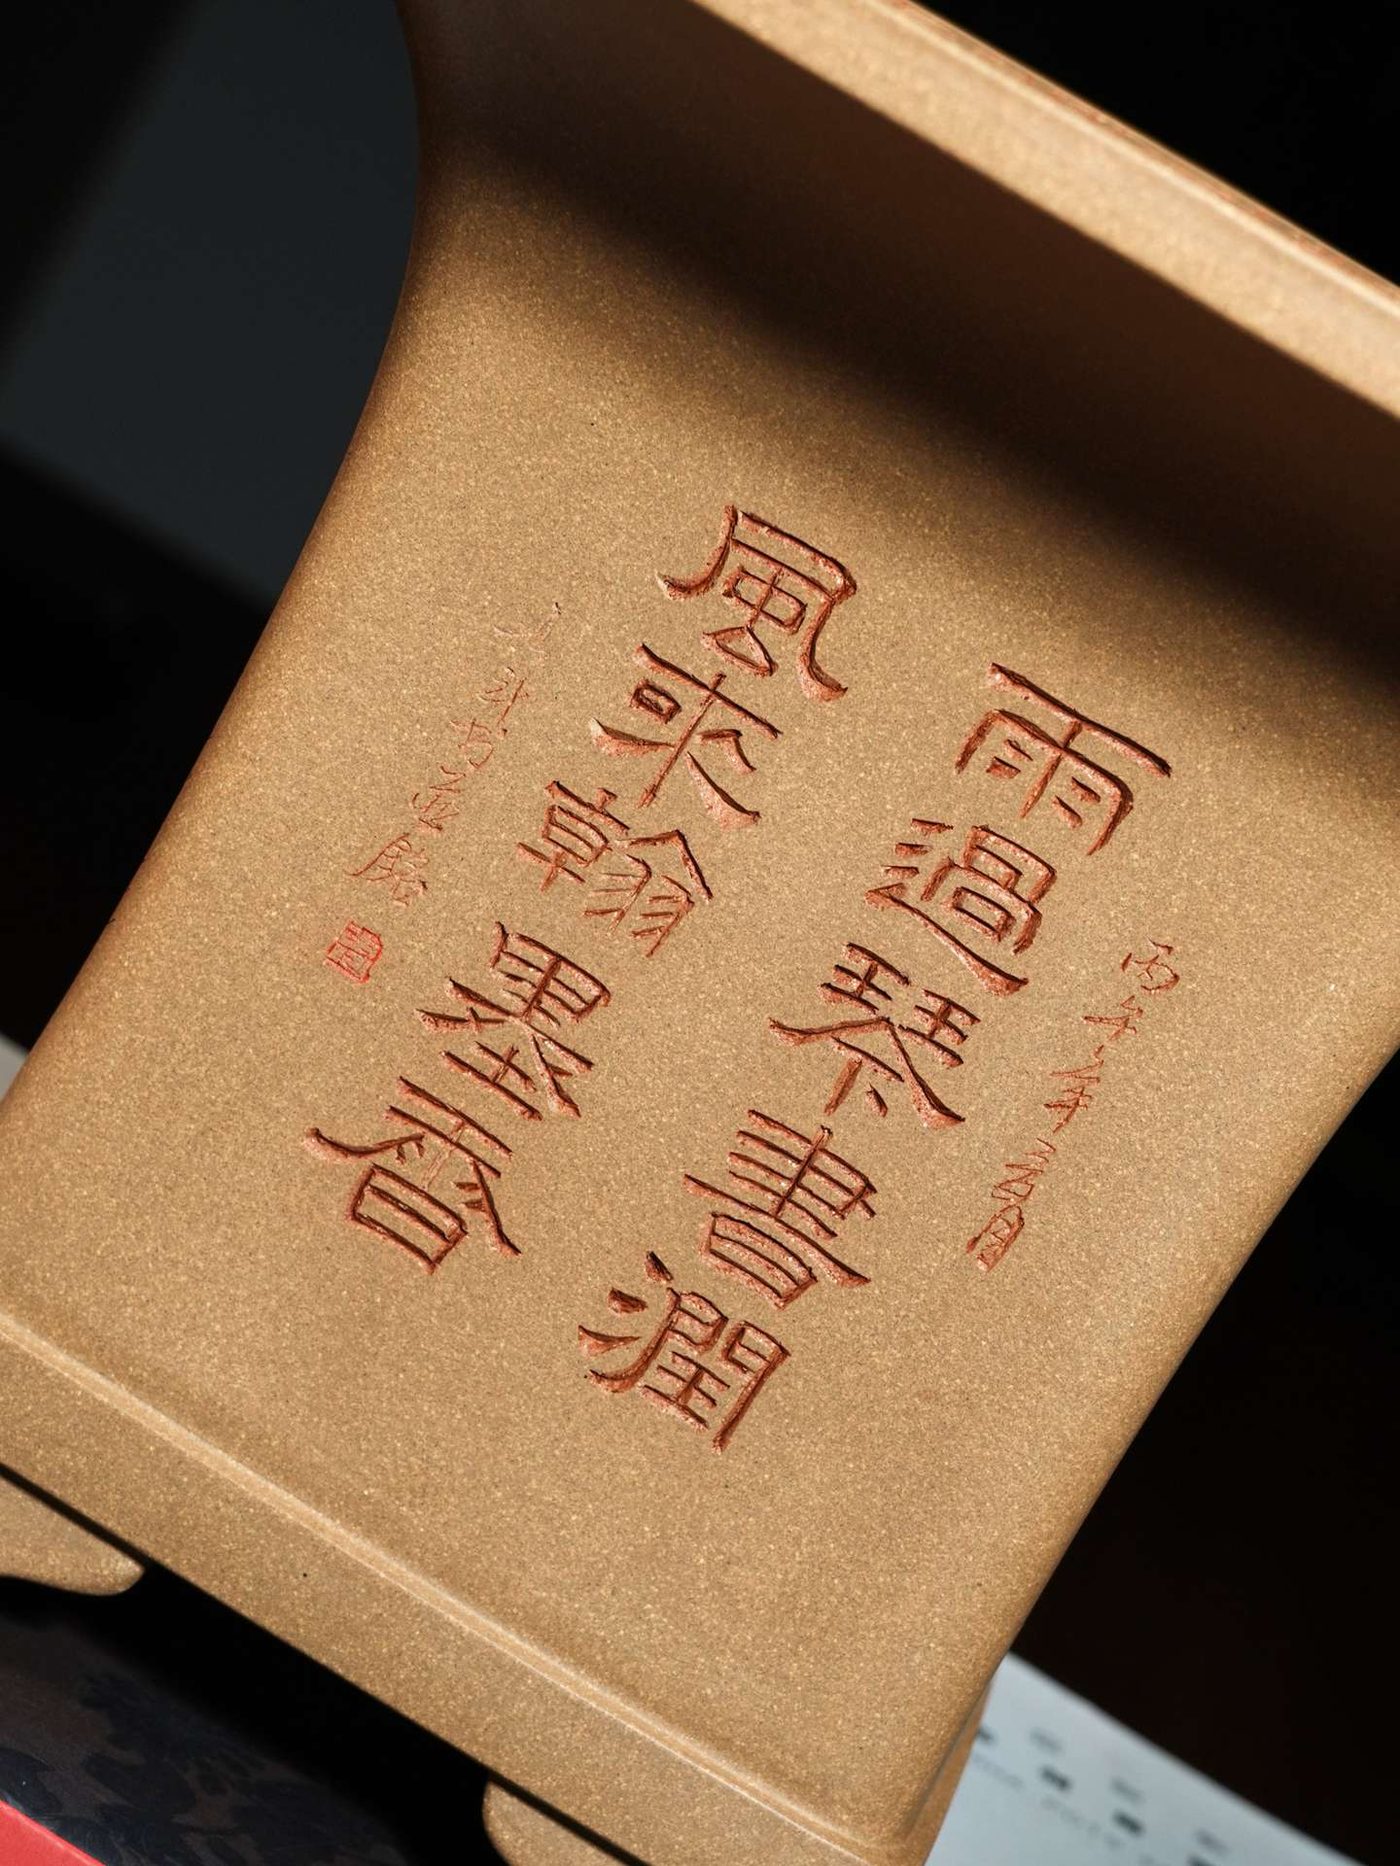 丙午年春月
雨過琴書潤
風來翰墨香